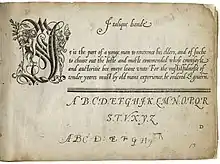 Italique hande
It is the part of a yonge man to reverence his elders, and of suche
to choose out the beste and moste commended whose counsayle
and auctoritie hee maye leane unto: For the unskilfulnesse of
tender yeares must by old mens experience, be ordered & governed.
A B C D E F G H I K L M N O P Q R
S T V X Y Z
A B C D E F G H